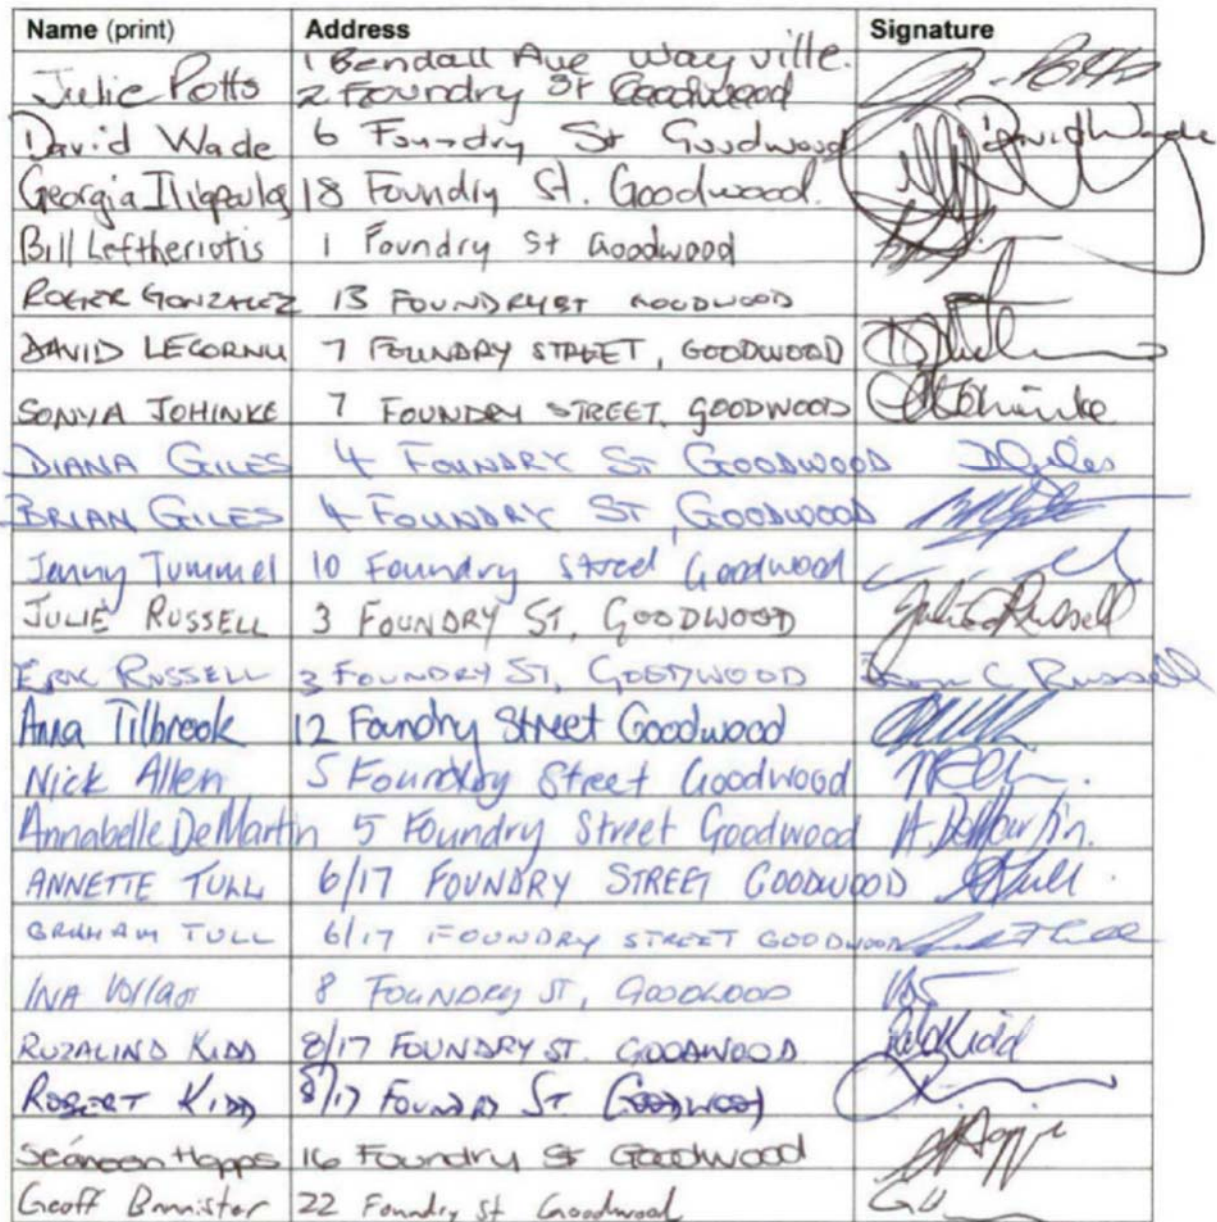 Name (print) Address Signature
1 Bendall Ave Wayville.
Julie Potts 2 Foundry St Goodwood J. Potts
David Wade 6 Foundry St Goodwood David Wade
Georgia Iliopoulos 18 Foundry St. Goodwood.
Bill Leftheriotis 1 Foundry St Goodwood
ROGER GONZALEZ 13 FOUNDRY ST GOODWOOD
DAVID LECORNU 7 FOUNDRY STREET, GOODWOOD
SONYA JOHINKE 7 FOUNDRY STREET, GOODWOOD Johinke
DIANA GILES 4 FOUNDRY ST GOODWOOD DGiles
BRIAN GILES 4 FOUNDRY ST, GOODWOOD
Jenny Tummel 10 Foundry Street Goodwood
JULIE RUSSELL 3 FOUNDRY ST, GOODWOOD Julie Russell
ERIC RUSSELL 3 FOUNDRY ST, GOODWOOD C Russell
Anna Tilbrook 12 Foundry Street Goodwood
Nick Allen 5 Foundry Street Goodwood
Annabelle DeMartin 5 Foundry Street Goodwood A. DeMartin.
ANNETTE TULL 6/17 FOUNDRY STREET GOODWOOD ATull.
GRAHAM TULL 6/17 FOUNDRY STREET GOODWOOD
INA 8 FOUNDRY ST, GOODWOOD
ROZALIND KIDD 8/17 FOUNDRY ST. GOODWOOD Kidd
ROBERT KIDD 8/17 FOUNDRY ST GOODWOOD
Happs 16 Foundry St Goodwood
Geoff Bannister 22 Foundry St Goodwood